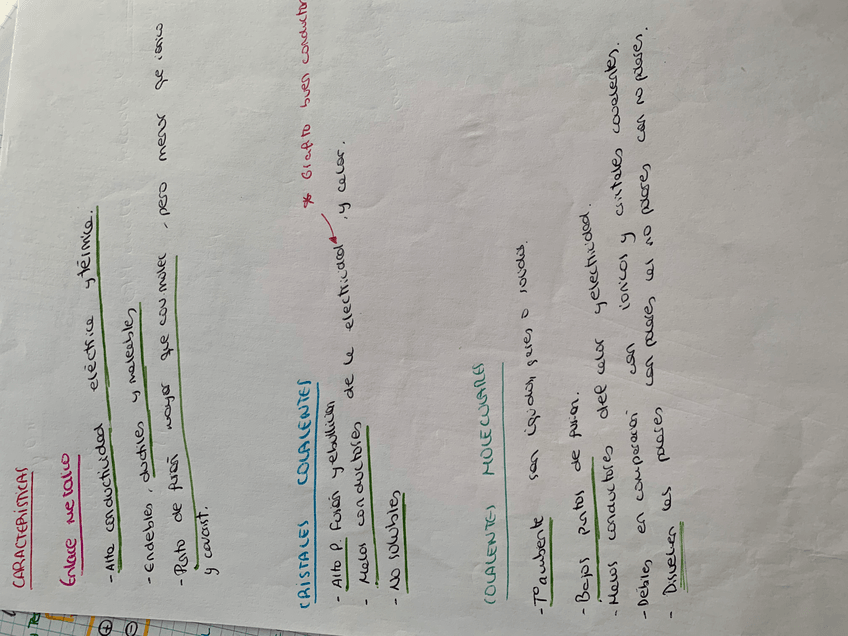 CARACTERÍSTICAS
Enlace metálico
- Alta conductividad eléctrica y térmica.
- Endebles, ductiles y maleables
- Punto de fusión mayor que cov molec, pero menor que iónico
y covart.
CRISTALES COVALENTES
* Grafito buen conductor
- Alto P. Fusión y ebullición
- Malos conductores de la electricidad y calor.
- No solubles
COVALENTES MOLECULARES
- Tª ambiente son líquidos, gases o solidos.
- Bajos puntos de fusión.
- Malos conductores del calor y electricidad.
- Débiles en comparación con iónicos y cristales covalentes.
- Disuelven los polares con polares los no polares con no polares.